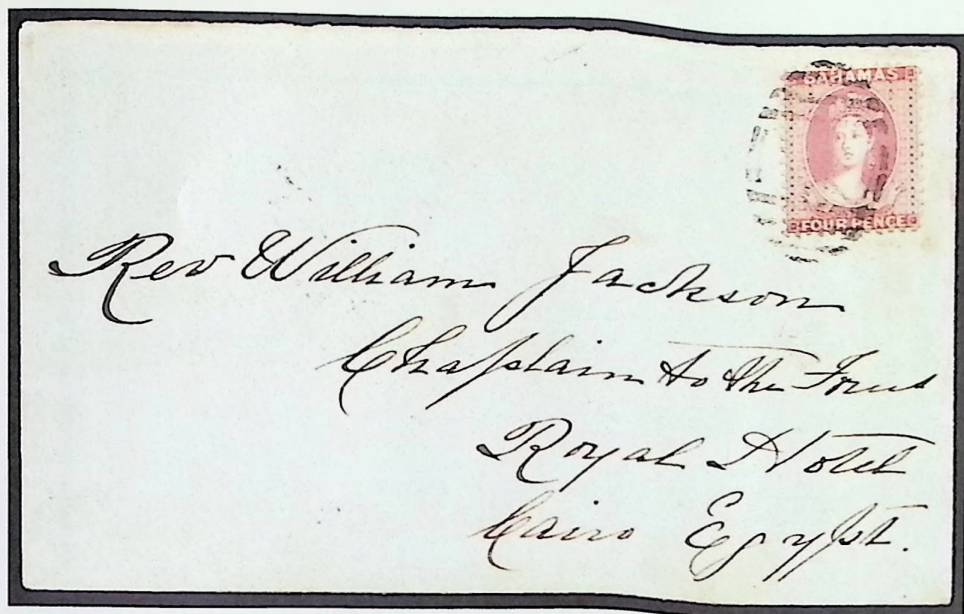 BAHAMAS
FOUR PENCE
Rev William Jackson
Chaplain to the
Royal Hotel
Cairo Egypt.